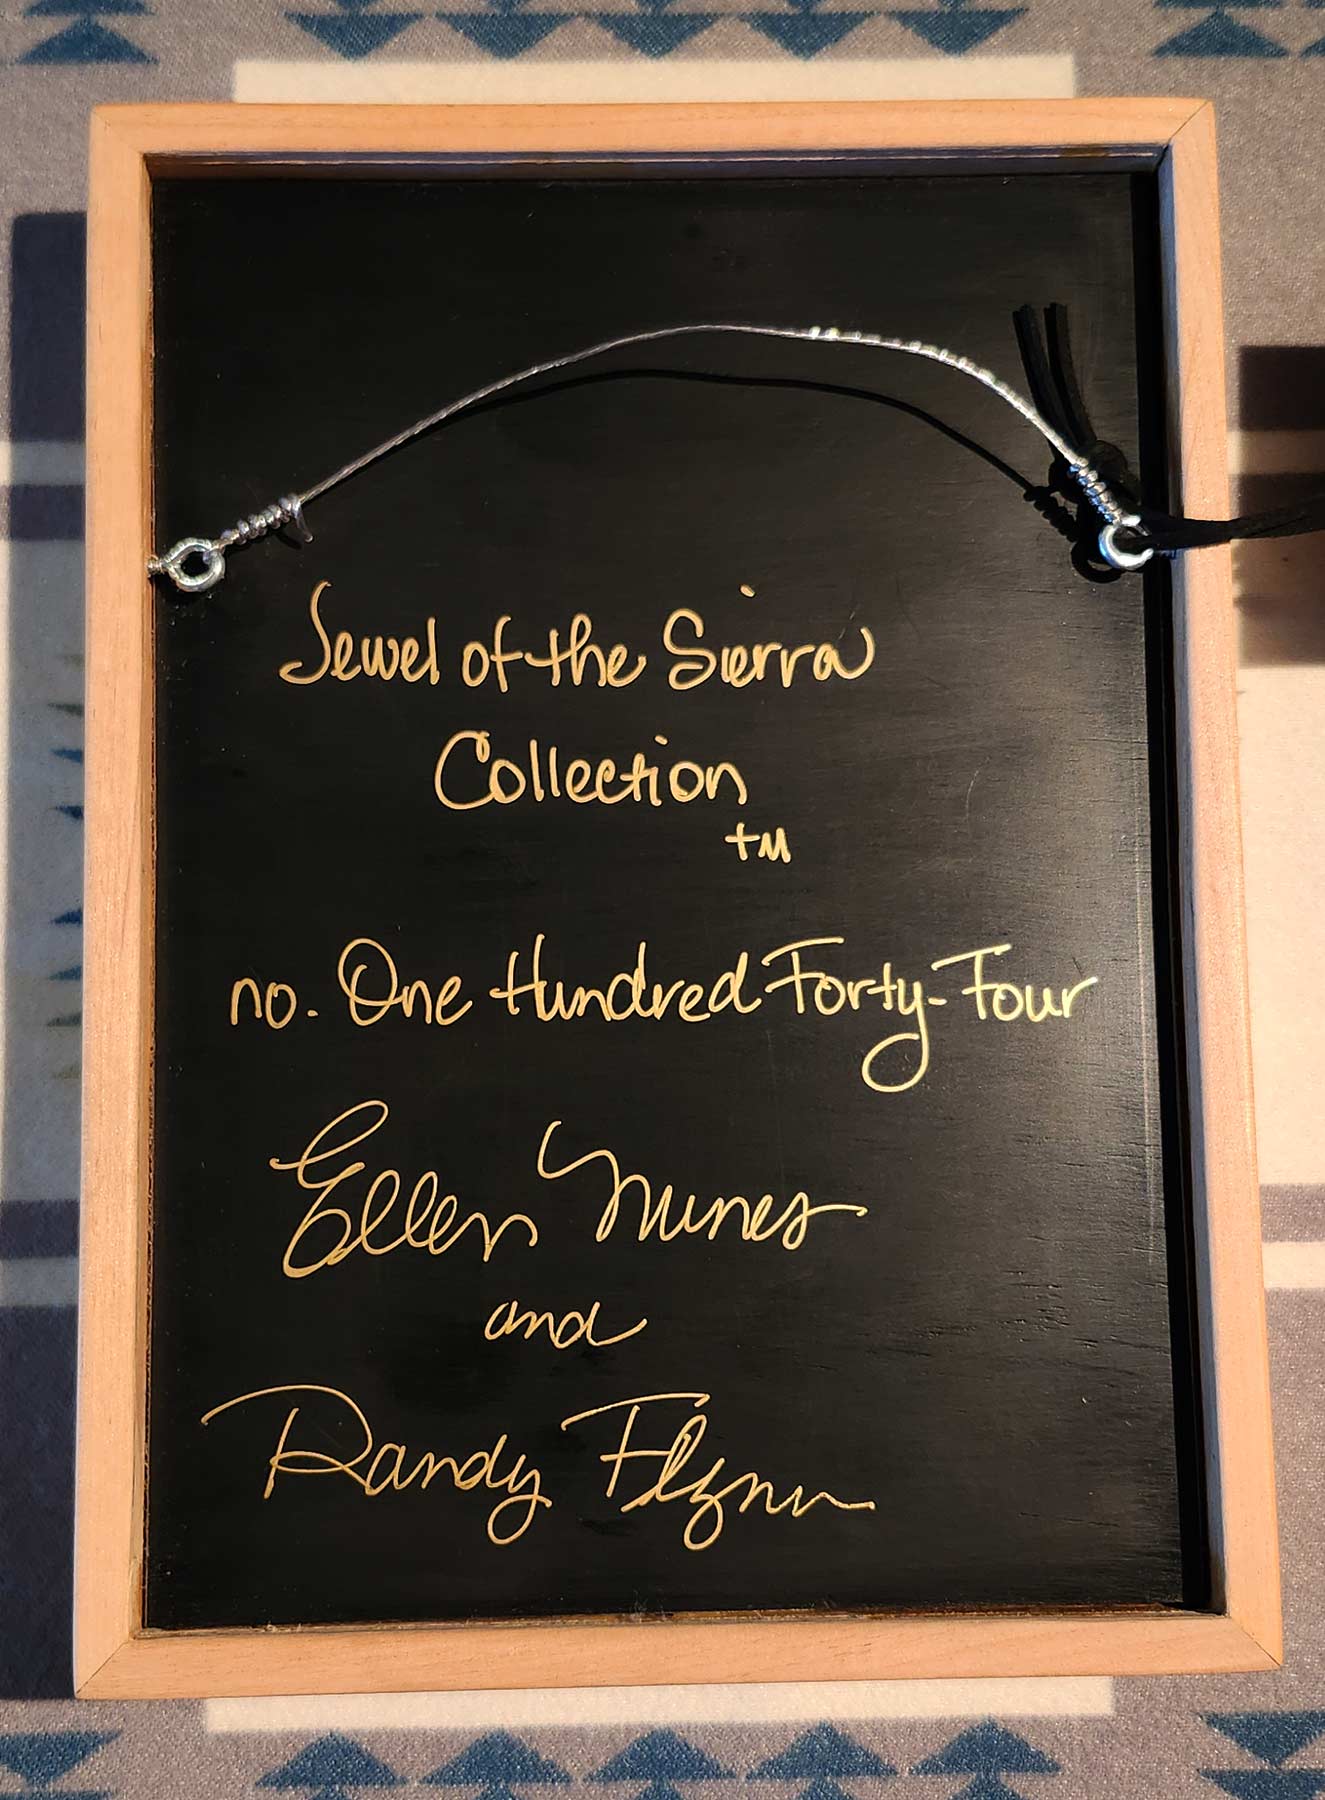 Jewel of the Sierra
Collection
TM
no. One Hundred Forty-Four
Ellen Nunes
and
Randy Flynn